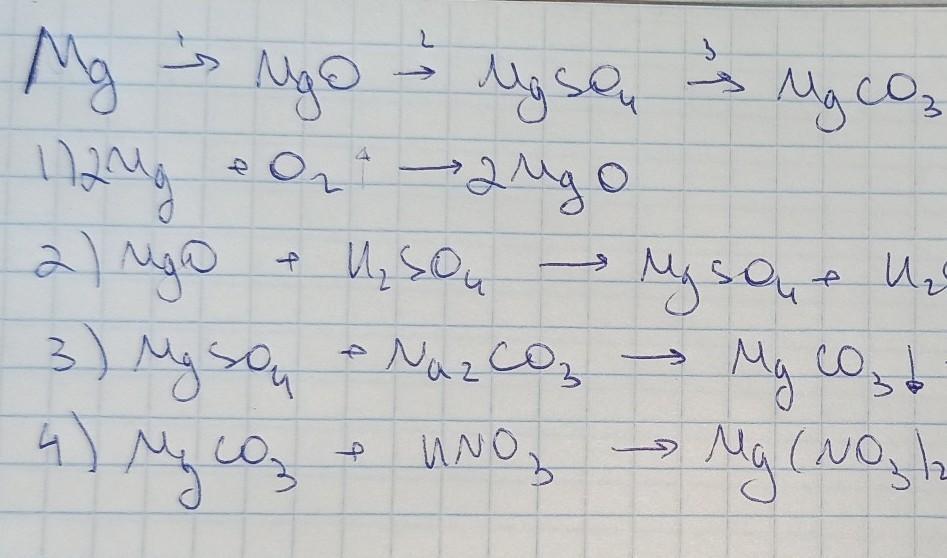 Mg 1→ MgO 2→ MgSO₄ 3→ MgCO₃
1) 2Mg + O₂ → 2MgO
2) MgO + H₂SO₄ → MgSO₄ + H₂
3) MgSO₄ + Na₂CO₃ → MgCO₃↓
4) MgCO₃ + HNO₃ → Mg(NO₃)₂